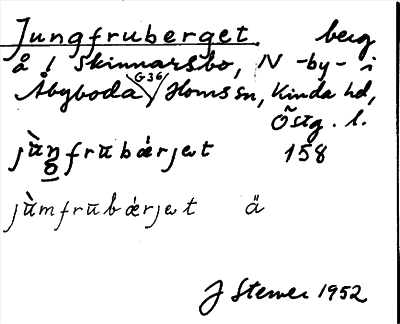 Jungfruberget berg
å 1 Skinnarsbo, N -by- i
Åbyboda G36 / Horns sn, Kinda hd,
Östg. l.
jùŋfrūbǽrjet 158
jùmfrūbǽrjet ä
J Stener 1952